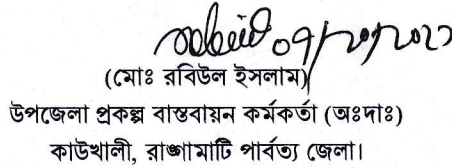 (মোঃ রবিউল ইসলাম)
উপজেলা প্রকল্প বাস্তবায়ন কর্মকর্তা (অঃদাঃ)
কাউখালী, রাঙ্গামাটি পার্বত্য জেলা।